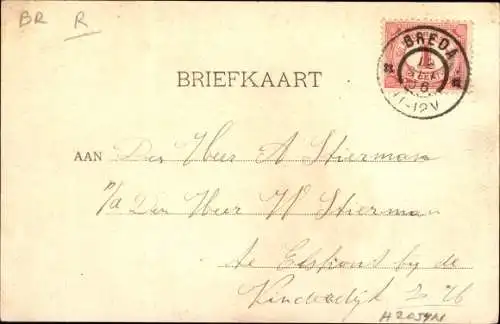 BR R
BREDA
11-12V
BRIEFKAART
AAN Den Heer A Stierman
p/a Den Heer W Stierman
te Elshout by de
Kinderdijk Z H